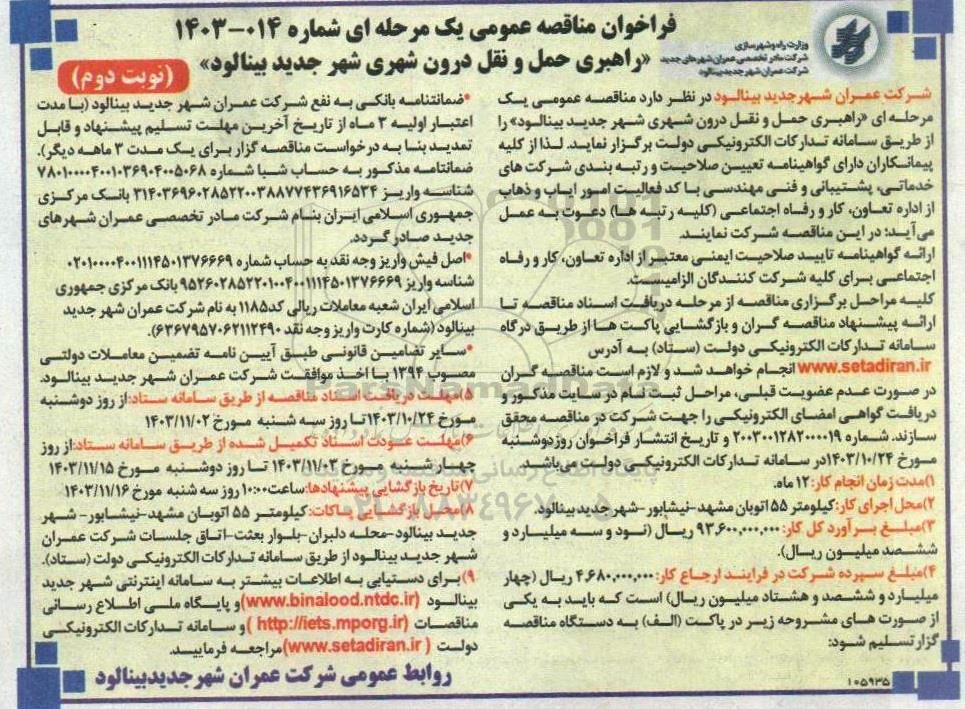 وزارت راه و شهرسازی
شرکت مادر تخصصی عمران شهرهای جدید
شرکت عمران شهر جدید بینالود
فراخوان مناقصه عمومی یک مرحله ای شماره ۰۱۴-۱۴۰۳
«راهبری حمل و نقل درون شهری شهر جدید بینالود»
(نوبت دوم)
شرکت عمران شهر جدید بینالود در نظر دارد مناقصه عمومی یک
مرحله ای «راهبری حمل و نقل درون شهری شهر جدید بینالود» را
از طریق سامانه تدارکات الکترونیکی دولت برگزار نماید. لذا از کلیه
پیمانکاران دارای گواهینامه تعیین صلاحیت و رتبه بندی شرکت های
خدماتی، پشتیبانی و فنی مهندسی با کد فعالیت امور ایاب و ذهاب
از اداره تعاون، کار و رفاه اجتماعی (کلیه رتبه ها) دعوت به عمل
می‌آید؛ در این مناقصه شرکت نمایند.
ارائه گواهینامه تایید صلاحیت ایمنی معتبر از اداره تعاون، کار و رفاه
اجتماعی برای کلیه شرکت کنندگان الزامیست.
کلیه مراحل برگزاری مناقصه از مرحله دریافت اسناد مناقصه تا
ارائه پیشنهاد مناقصه گران و بازگشایی پاکت ها از طریق درگاه
سامانه تدارکات الکترونیکی دولت (ستاد) به آدرس
www.setadiran.ir انجام خواهد شد و لازم است مناقصه گران
در صورت عدم عضویت قبلی، مراحل ثبت نام در سایت مذکور و
دریافت گواهی امضای الکترونیکی را جهت شرکت در مناقصه محقق
سازند. شماره ۲۰۰۳۰۰۱۲۸۲۰۰۰۰۱۹ و تاریخ انتشار فراخوان روز دوشنبه
مورخ ۱۴۰۳/۱۰/۲۴ در سامانه تدارکات الکترونیکی دولت می‌باشد.
۱)مدت زمان انجام کار: ۱۲ ماه.
۲)محل اجرای کار: کیلومتر ۵۵ اتوبان مشهد-نیشابور -شهر جدید بینالود.
۳)مبلغ برآورد کل کار: ۹۳,۶۰۰,۰۰۰,۰۰۰ ریال (نود و سه میلیارد و
ششصد میلیون ریال).
۴)مبلغ سپرده شرکت در فرایند ارجاع کار: ۴,۶۸۰,۰۰۰,۰۰۰ ریال (چهار
میلیارد و ششصد و هشتاد میلیون ریال) است که باید به یکی
از صورت های مشروحه زیر در پاکت (الف) به دستگاه مناقصه
گزار تسلیم شود:
*ضمانتنامه بانکی به نفع شرکت عمران شهر جدید بینالود (با مدت
اعتبار اولیه ۳ ماه از تاریخ آخرین مهلت تسلیم پیشنهاد و قابل
تمدید بنا به درخواست مناقصه گزار برای یک مدت ۳ ماهه دیگر).
ضمانتنامه مذکور به حساب شبا شماره ۷۸۰۱۰۰۰۰۴۰۰۱۰۳۶۹۰۴۰۰۵۰۶۸
شناسه واریز ۳۱۴۰۳۶۹۶۰۲۸۵۲۲۰۰۳۸۸۷۷۴۳۶۹۱۶۵۳۴ بانک مرکزی
جمهوری اسلامی ایران بنام شرکت مادر تخصصی عمران شهرهای
جدید صادر گردد.
*اصل فیش واریز وجه نقد به حساب شماره ۰۲۰۱۰۰۰۰۴۰۰۱۱۱۴۵۰۱۳۷۶۶۶۹
شناسه واریز ۹۵۲۶۰۲۸۵۲۲۰۱۰۰۴۰۰۱۱۱۴۵۰۱۳۷۶۶۶۹ بانک مرکزی جمهوری
اسلامی ایران شعبه معاملات ریالی کد۱۱۸۵ به نام شرکت عمران شهر جدید
بینالود (شماره کارت واریز وجه نقد ۶۳۶۷۹۵۷۰۶۲۱۱۲۴۹۰).
*سایر تضامین قانونی طبق آیین نامه تضمین معاملات دولتی
مصوب ۱۳۹۴ با اخذ موافقت شرکت عمران شهر جدید بینالود.
۵)مهلت دریافت اسناد مناقصه از طریق سامانه ستاد: از روز دوشنبه
مورخ ۱۴۰۳/۱۰/۲۴ تا روز سه شنبه مورخ ۱۴۰۳/۱۱/۰۲
۶)مهلت عودت اسناد تکمیل شده از طریق سامانه ستاد: از روز
چهارشنبه مورخ ۱۴۰۳/۱۱/۰۳ تا روز دوشنبه مورخ ۱۴۰۳/۱۱/۱۵
۷)تاریخ بازگشایی پیشنهادها: ساعت ۱۰:۰۰ روز سه شنبه مورخ ۱۴۰۳/۱۱/۱۶
۸)محل بازگشایی پاکات: کیلومتر ۵۵ اتوبان مشهد-نیشابور- شهر
جدید بینالود-محله دلبران-بلوار بعثت-اتاق جلسات شرکت عمران
شهر جدید بینالود از طریق سامانه تدارکات الکترونیکی دولت (ستاد).
۹)برای دستیابی به اطلاعات بیشتر به سامانه اینترنتی شهر جدید
بینالود (www.binalood.ntdc.ir) و پایگاه ملی اطلاع رسانی
مناقصات (http://iets.mporg.ir) و سامانه تدارکات الکترونیکی
دولت (www.setadiran.ir) مراجعه فرمایید.
روابط عمومی شرکت عمران شهر جدید بینالود
۱۰۵۹۳۵
ParsNamadData